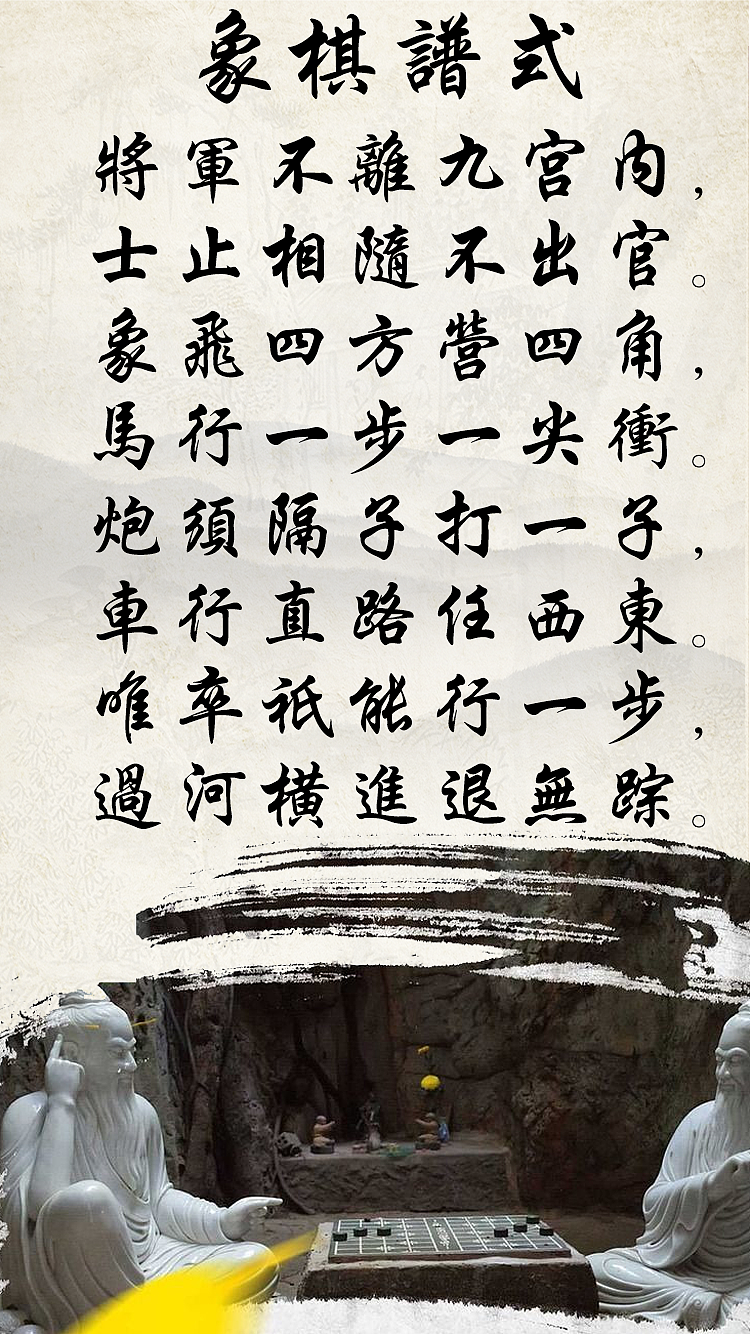 象棋譜式
將軍不離九宮内，
士止相隨不出官。
象飛四方營四角，
馬行一步一尖衝。
炮須隔子打一子，
車行直路任西東。
唯卒祗能行一步，
過河橫進退無踪。